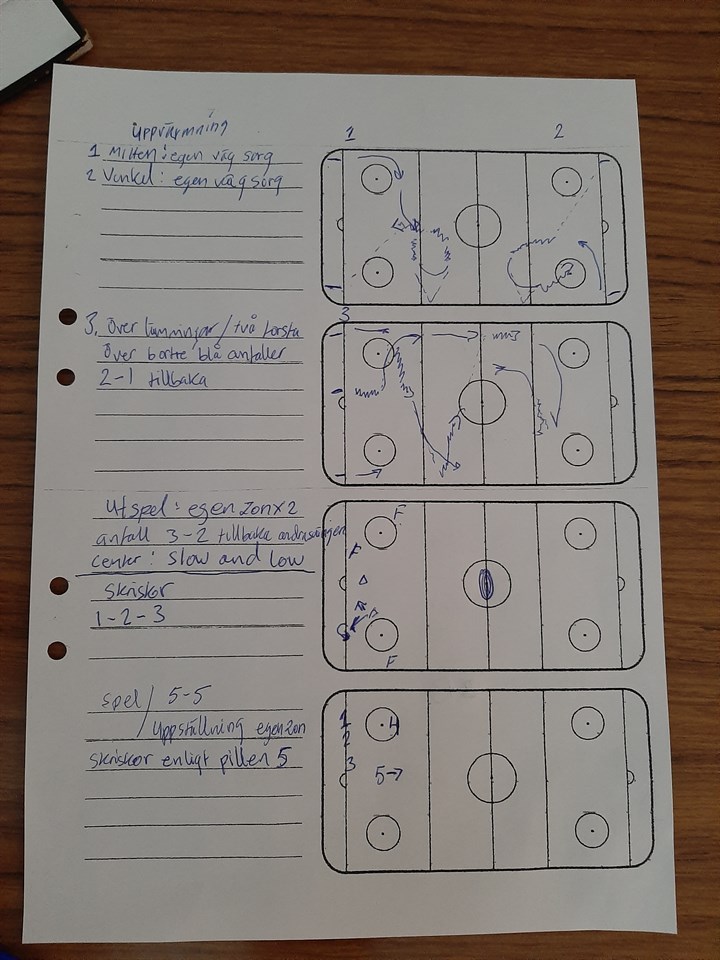 Uppvärmning
1 2
1 Mitten: egen väg sarg
2 Vinkel: egen väg sarg
3
3. Överlämningar / två första
över bortre blå anfaller
2-1 tillbaka
Utspel: egen zon x 2
anfall 3-2 tillbaka andra svängen
center: Slow and low
F
F
F
skriskor
1-2-3
spel / 5-5
/ Uppställning egen zon
skriskor enligt pillen 5
1 4
2
3
5→